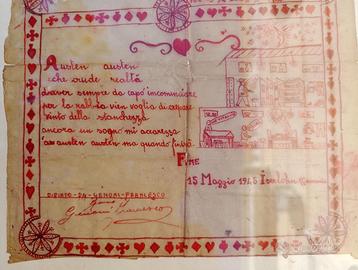 Austen austen
che rude realtà
dover sempre da capo incominciare
per la rabbia vien voglia di crepare
vinto della stanchezza
ancora un sogno mi accarezza
austen austen ma quando finirà
FINE
15 Maggio 1945
DIPINTO-DA-GENONI-FRANCESCO
Genoni Francesco